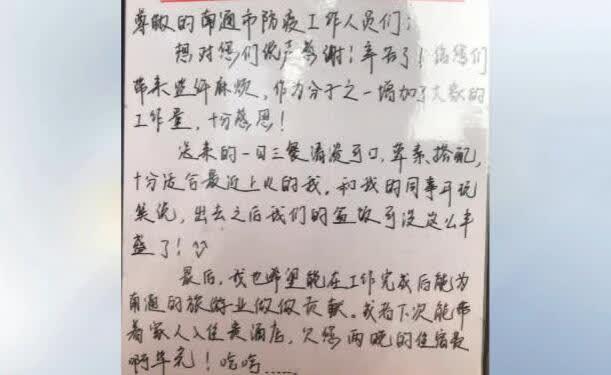 尊敬的南通市防疫工作人员们：
想对您们说声感谢！辛苦了！给您们
带来些许麻烦，作为分子之一增加了大家的
工作量，十分感恩！
送来的一日三餐清淡可口，荤素搭配，
十分适合最近上火的我。和我的同事开玩
笑说，出去之后我们的盒饭可没这么丰
盛了！
最后，我也希望能在工作完成后能为
南通的旅游业做做贡献。我若下次能带
着家人入住贵酒店，欠您两晚的住宿费
啊华元！哈哈……